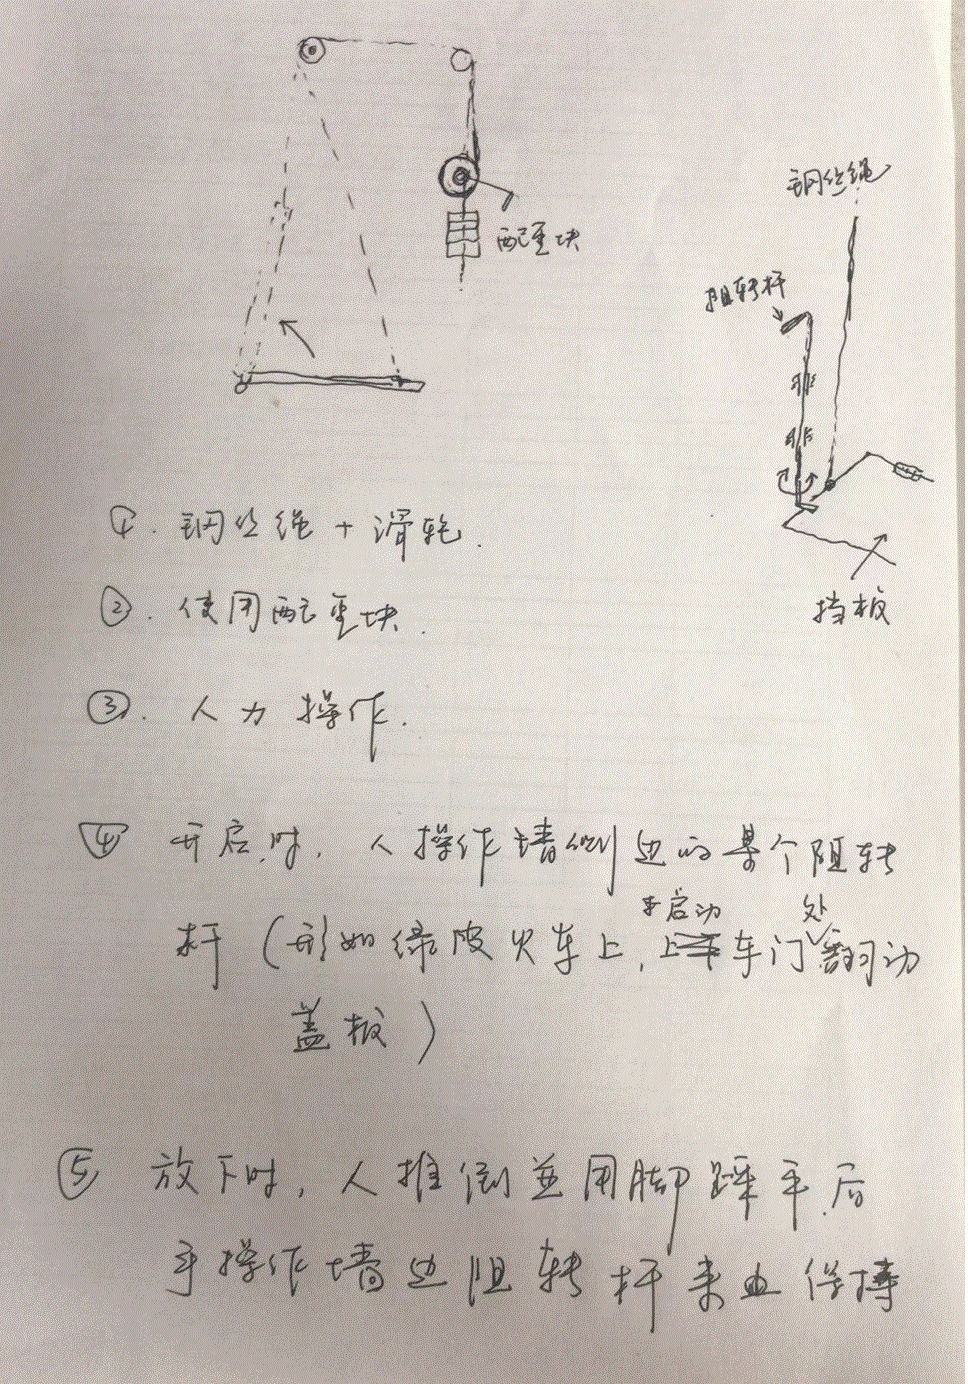 钢丝绳
配重块
阻转杆
挡板
①. 钢丝绳 + 滑轮.
②. 使用配重块.
③. 人力操作.
④ 开启时, 人操作墙侧边的某个阻转
手启动 处
杆 (形如绿皮火车上, 车门翻动
盖板)
⑤ 放下时, 人推倒并用脚踩平后
手操作墙边阻转杆来 保持